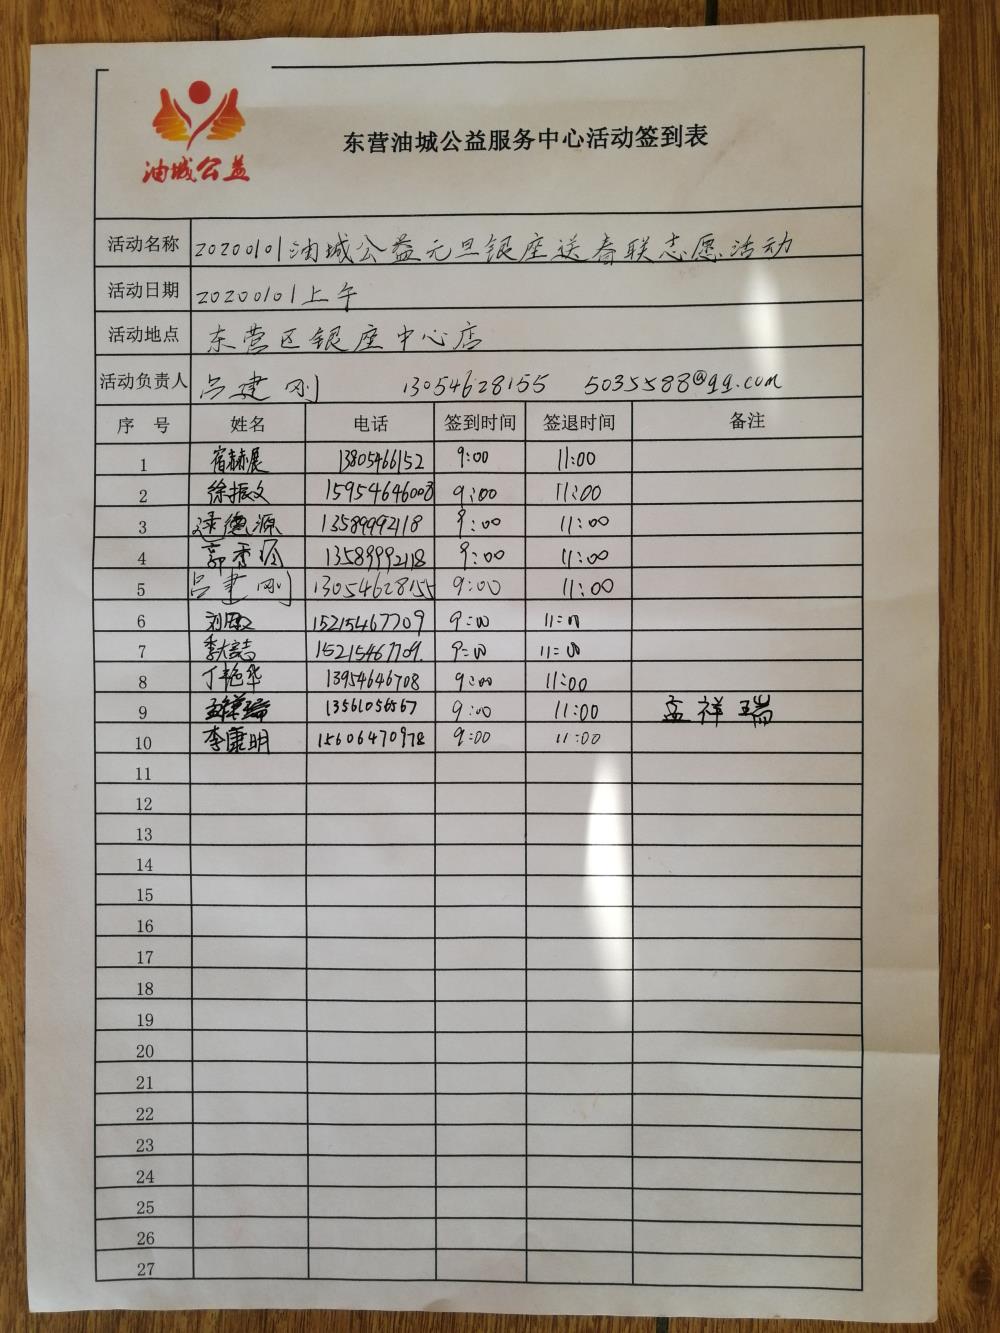 油城公益
东营油城公益服务中心活动签到表
活动名称 20200101油城公益元旦银座送春联志愿活动
活动日期 20200101上午
活动地点 东营区银座中心店
活动负责人 吕建刚 13054628155 5035588@qq.com
序号 姓名 电话 签到时间 签退时间 备注
1 宿赫展 13805466152 9:00 11:00
2 徐振文 15954646008 9:00 11:00
3 逯德源 13589992118 9:00 11:00
4 郭秀 13589992118 9:00 11:00
5 吕建刚 13054628155 9:00 11:00
6 刘 15215467709 9:00 11:00
7 季喆 15215467709. 9:00 11:00
8 丁艳华 13954646708 9:00 11:00
9 孟祥瑞 13561056567 9:00 11:00 孟祥瑞
10 李康明 15606470978 9:00 11:00
11
12
13
14
15
16
17
18
19
20
21
22
23
24
25
26
27